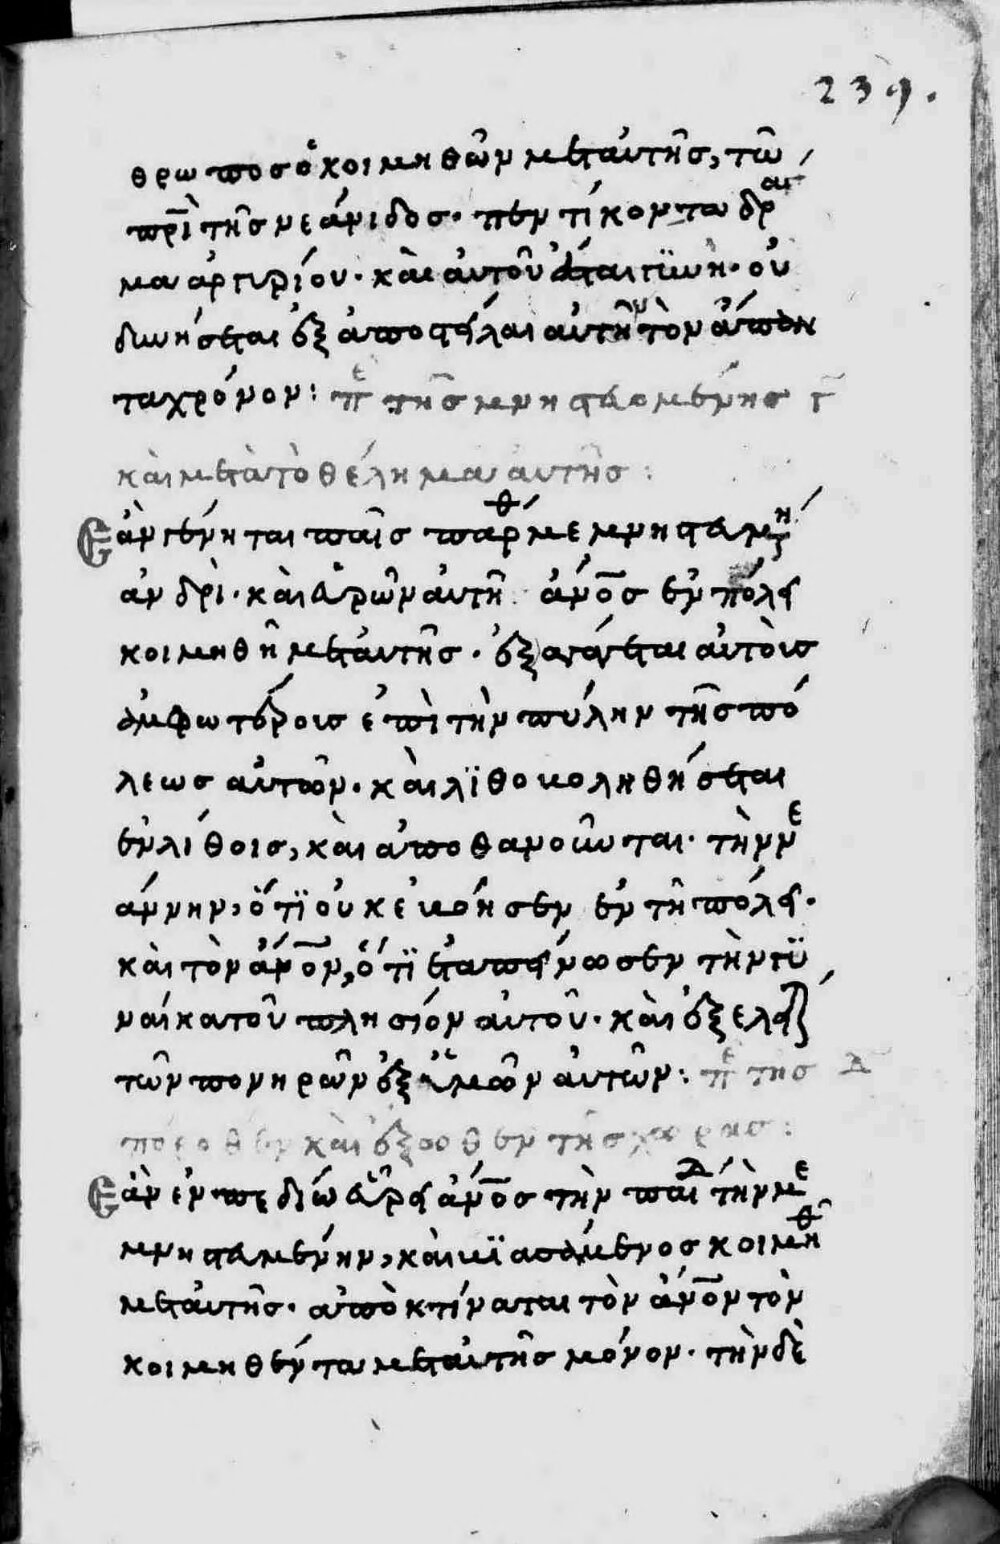 239.
θρωπος ὁ κοιμηθὼν μετ' αὐτῆς, τῶ
πρὶ τῆς νεάνιδος· πεντίκοντα δραχ
μα ἀργυρίου· καὶ αὐτοῦ ἔσται γϋνή· οὐ
δυνήσεται ἐξαποστεῖλαι αὐτὴν τὸν ἅπαν
τα χρόνον: πε τῆς μνηστευομένης γ
καὶ μετὰ τὸ θέλημα αὐτῆς:
Ἐὰν γένηται παῖς παρθ μεμνηστευμη
ἀνδρὶ· καὶ εὑρὼν αὐτῆ ἄνος ἐν πόλει
κοιμηθῆ μετ' αὐτῆς· ἐξαγάγεται αὐτοὺς
ἀμφωτέροις ἐπὶ τὴν πύλην τῆς πό
λεως αὐτῶν· καὶ λϊθοκοληθήσεται
ἐν λίθοις, καὶ ἀποθανοῦνται· τὴν με
άννην, ὅτϊ οὐκ ἐκόησεν ἐν τῆ πόλει·
καὶ τὸν ἄνον, ὅτϊ ἐταπείνωσεν τὴν γϋ
ναίκα τοῦ πλησίον αὐτοῦ· καὶ ἐξελεῖς
τῶν πονηρῶν ἐξ ὑμῶν αὐτῶν: πε της Δ
πόρρωθεν καὶ ἔξωθεν τῆς χώρας:
Ἐὰν ἐν πεδίω εὕρει ἄνος τὴν παιδ τὴν με
μνηστευμένην, καὶ κϊασάμενος κοιμηθῆ
μετ' αὐτῆς· ἀπὸκτίναται τὸν ἄνον τὸν
κοιμηθέντα μετ' αὐτῆς μόνον· τὴν δὲ